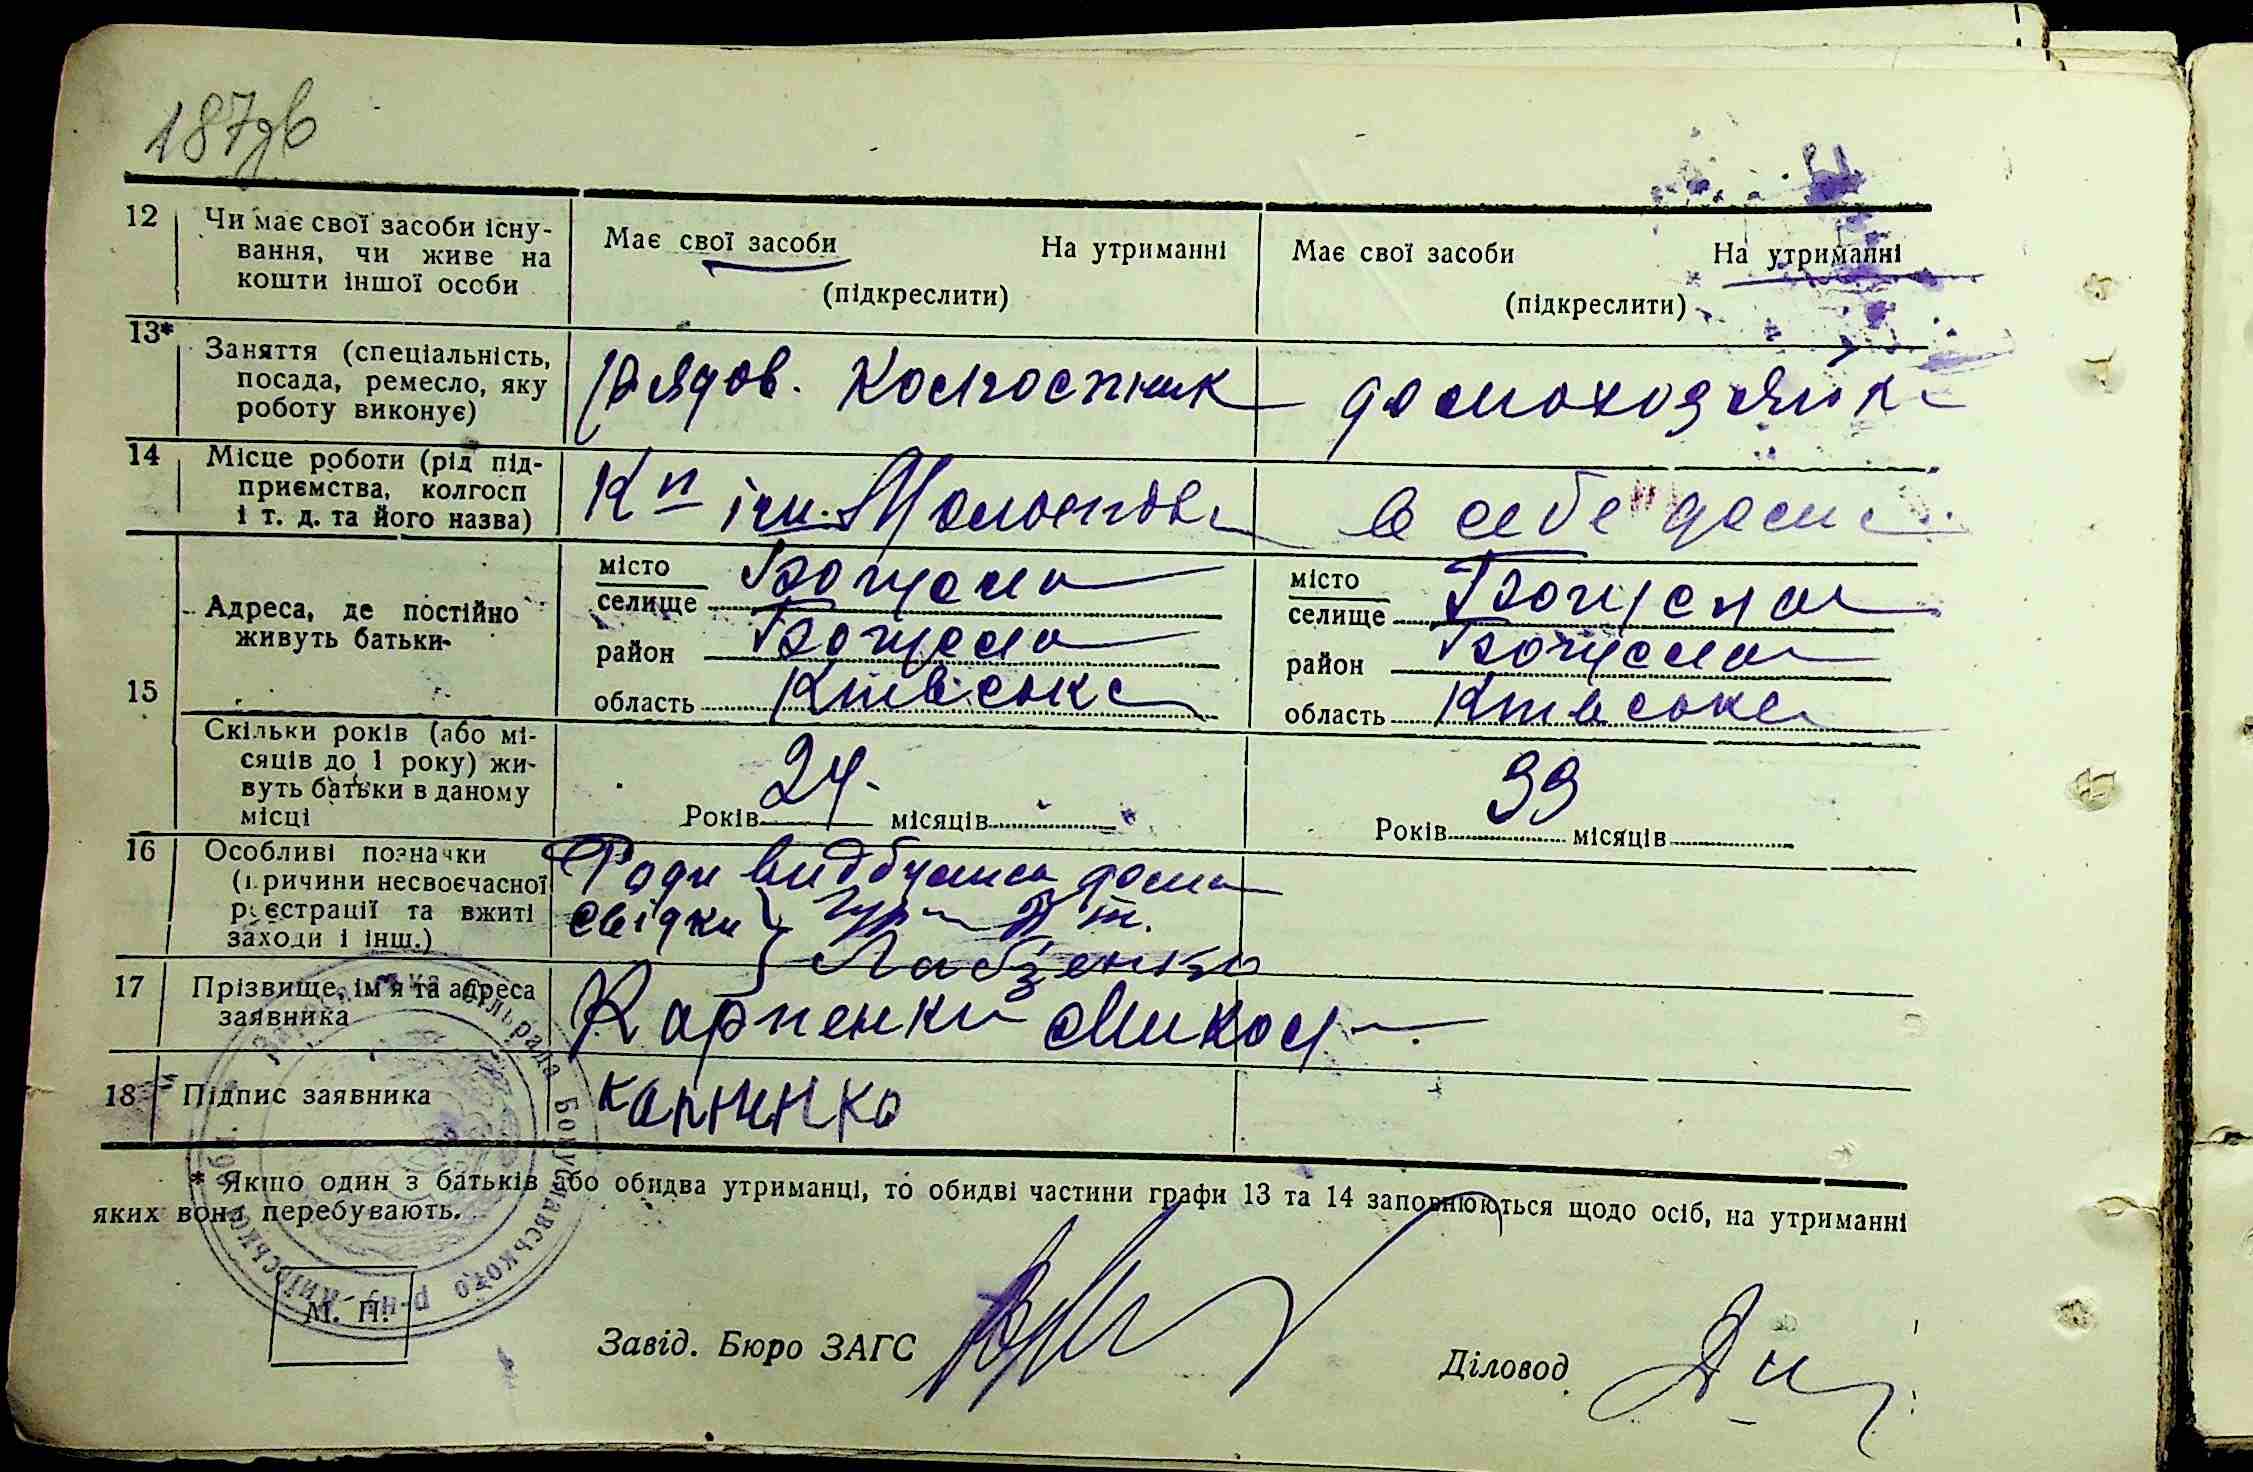 187зв
12 Чи має свої засоби існу-
вання, чи живе на
кошти іншої особи
Має свої засоби На утриманні
(підкреслити)
Має свої засоби На утриманні
(підкреслити)
13* Заняття (спеціальність,
посада, ремесло, яку
роботу виконує)
Рядов. Колгоспник
домохозяйка
14 Місце роботи (рід під-
приємства, колгосп
і т. д. та його назва)
Кп ім. Молотова
в себе дома
15 Адреса, де постійно
живуть батьки
місто
селище Богуслав
район Богуслав
область Київська
місто
селище Богуслав
район Богуслав
область Київська
Скільки років (або мі-
сяців до 1 року) жи-
вуть батьки в даному
місці
Років 24 місяців
Років 39 місяців
16 Особливі позначки
(причини несвоєчасної
реєстрації та вжиті
заходи і інш.)
Роди видбулися дома
свідки
17 Прізвище, ім'я та адреса
заявника
Карпенко Микола
18 Підпис заявника
Сільрада Богуславського р-ну Київської
* Якщо один з батьків або обидва утриманці, то обидві частини графи 13 та 14 заповнюються щодо осіб, на утриманні
яких вони перебувають.
М. П.
Завід. Бюро ЗАГС
Діловод